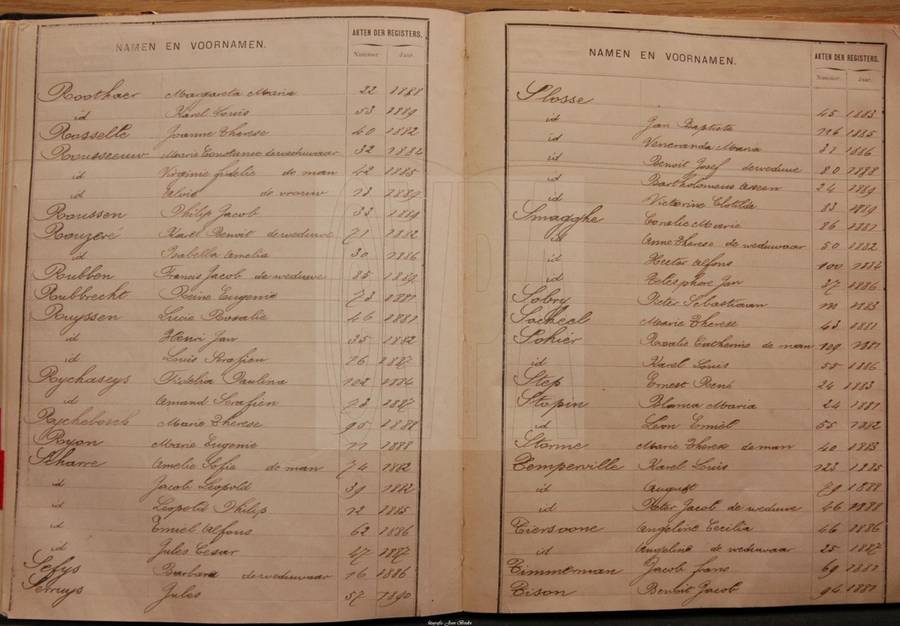 NAMEN EN VOORNAMEN. AKTEN DER REGISTERS.
Nummer. Jaar.
Roothaer Margareta Maria 22 1888
id Karel Louis 53 1889
Rosselle Joanne Therese 40 1882
Rousseeuw Marie Constance de weduwaar 32 1882
id Virginie Fidelie de man 42 1885
id Elvie de vrouw 1889
Roussen Philip Jacob 33 1889
Rouzeré Karel Benoit de weduwe 71 1882
id Isabella Amelia 30 1886
Rubben Francis Jacob de weduwe 85 1889
Rubbrecht Reine Eugenie 73 1881
Ruyssen Lucie Rosalie 46 1881
id Henri Jan 35 1882
id Louis Serafien 76 1887
Rychaseys Fidelia Paulina 102 1884
id Amand Serafien 73 1887
Rychebosch Marie Therese 95 1881
Ryon Marie Eugenie 11 1888
Scharre Amelie Sofie de man 74 1882
id Jacob Leopold 39 1882
id Leopold Philip 12 1885
id Emiel Alfons 62 1886
id Jules Cesar 47 1887
Sefys Barbara de weduwaar 76 1886
Serruys Jules 57 1890
NAMEN EN VOORNAMEN. AKTEN DER REGISTERS.
Nummer. Jaar.
Slosse
id Jan Baptiste 45 1883
id Veneranda Maria 116 1885
id Benoit Josef de weduwe 31 1886
id Bartholomeus 80 1888
id Victorine Clotilde 24 1889
Smagghe Coralie Marie 83 1889
id Anne Therese de weduwaar 86 1881
id Hector Alfons 50 1882
id Telesphore Jan 100 1884
Sobry Pieter Sebastiaan 37 1886
Socheel Marie Therese 1883
Sohier Rosalie Catherine de man 43 1881
id Karel Louis 129 1881
Step Ernest René 55 1886
Stopin Blanca Maria 24 1883
id Leon Emiel 24 1881
Storme Marie Therese de man 55 1882
Temperville Karel Louis 40 1883
id August 123 1885
id Pieter Jacob de weduwe 79 1888
Tiersoone Angeline Cecilia 46 1888
id Angeline de weduwaar 46 1886
Timmerman Jacob Frans 25 1887
Tison Benoit Jacob 69 1882
94 1881
fotografie Jean Bouhs